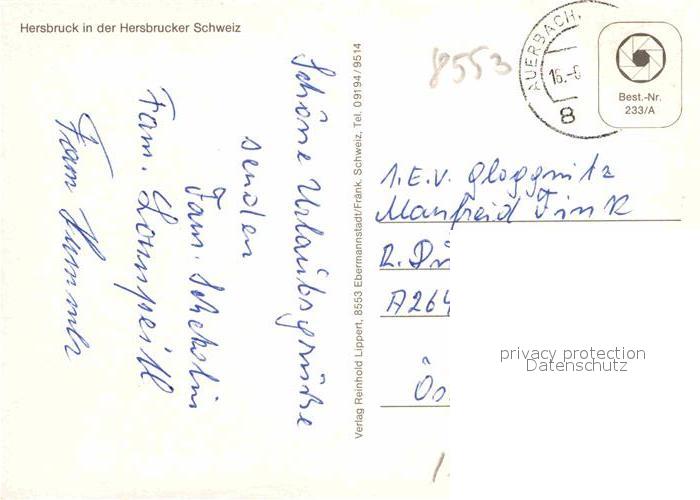 Hersbruck in der Hersbrucker Schweiz
Schöne Urlaubsgrüße
senden
Fam.
Fam.
Fam
Verlag Reinhold Lippert, 8553 Ebermannstadt/Fränk. Schweiz, Tel. 09194/9514
8553
AUERBACH,
16.-
8
Best.-Nr.
233/A
1.E.V. Gloggnitz
Manfreid Fink
R.
A264
Ös
privacy protection
Datenschutz